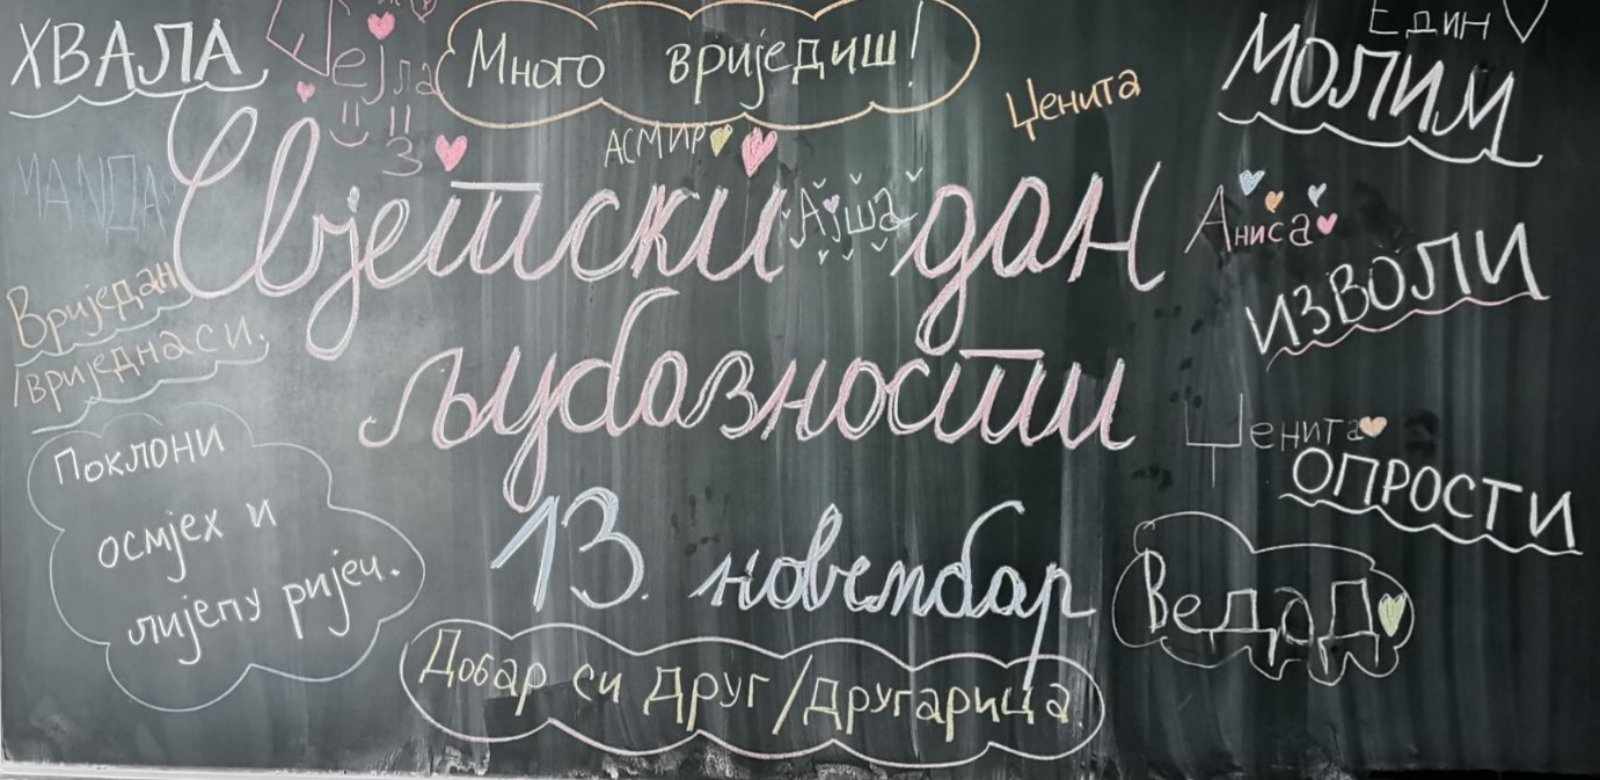 ХВАЛА
Џејла
Много вриједиш!
Един
МОЛИМ
Ценита
АСМИР
Свјетски дан
љубазности
13. новембар
Ајша
Аниса
ИЗВОЛИ
Вриједан
/вриједна си.
Ценита
ОПРОСТИ
Поклони
осмјех и
лијепу ријеч.
Ведад
Добар си друг/другарица.